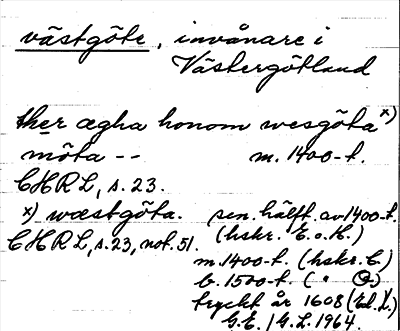 västgöte, invånare i
Västergötland
ther ægha honom wesgöta x)
möta -- m. 1400-t.
CHRL, s. 23.
x) wæstgöta. sen. hälft. av 1400-t.
CHRL, s. 23, not. 51. (hskr. E. o. H.)
m. 1400-t. (hskr. C.)
b. 1500-t. ( " Q.)
tryckt år 1608 (Ed. L.)
G.E. / G.L. 1964.